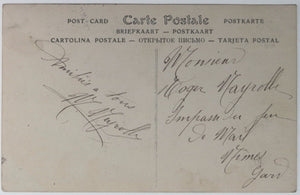 POST-CARD Carte Postale POSTKARTE
BRIEFKAART - POSTKAART
CARTOLINA POSTALE - ОТКРЫТОЕ ПИСЬМО - TARJETA POSTAL
Amitiés à tous
Mayrolle
Monsieur
Roger Mayrolle
Impasse du
de Mai
Nîmes
Gard